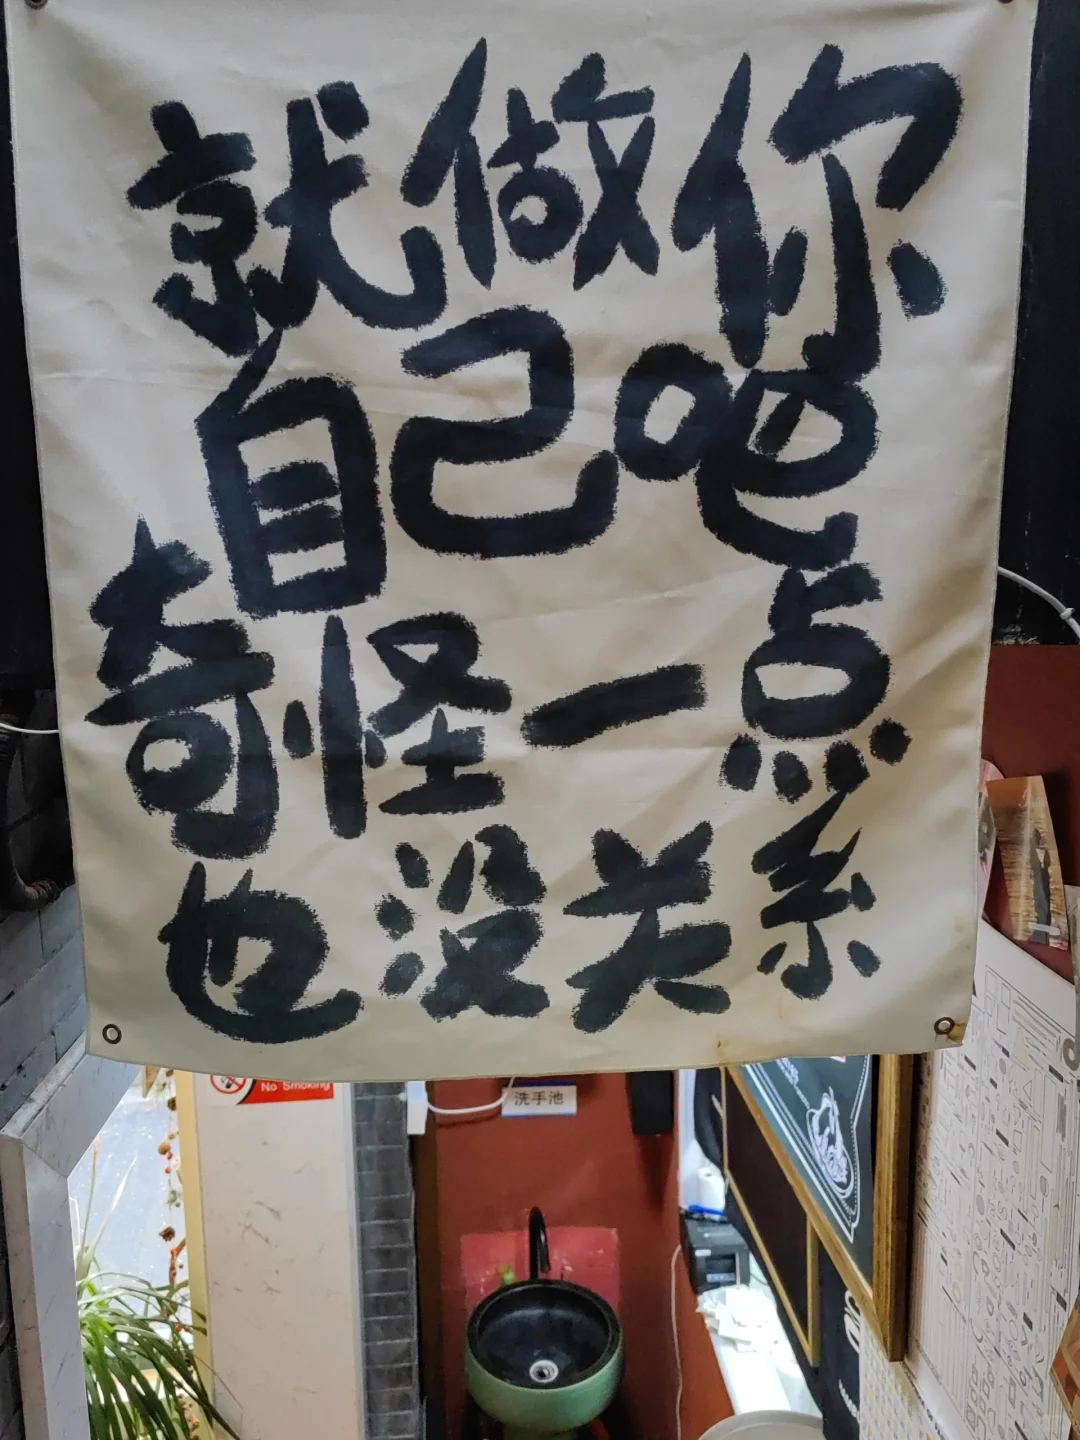 就做你
自己吧
奇怪一点
也没关系
No Smoking
洗手池